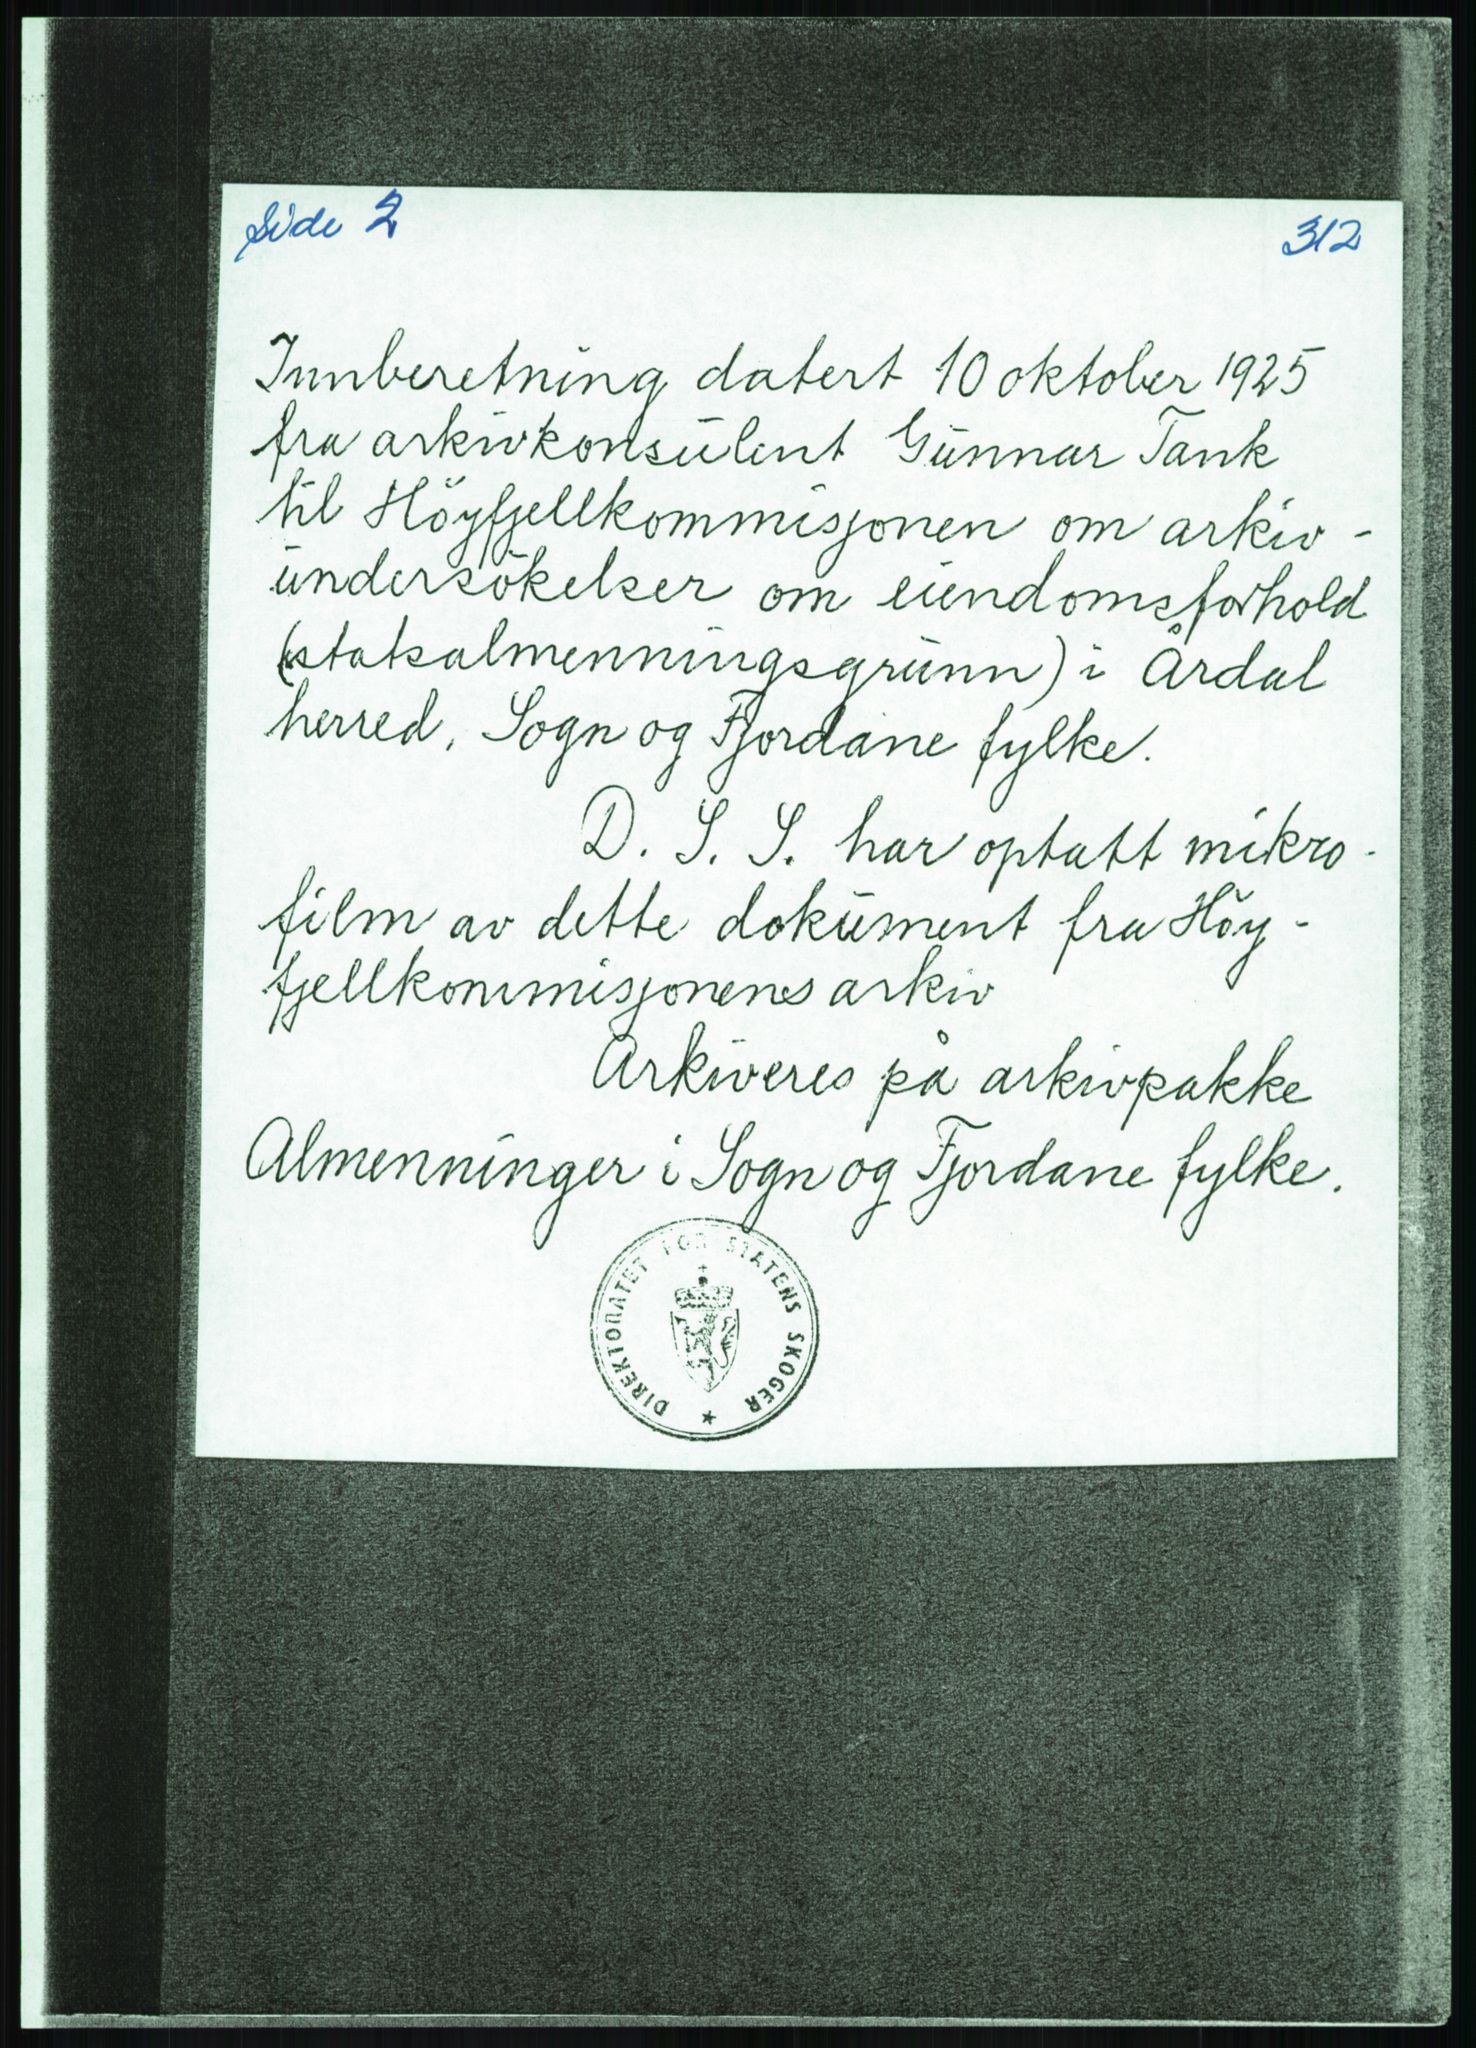 Side 2
312
Innberetning datert 10 oktober 1925
fra arkivkonsulent Gunnar Tank
til Höyfjellkommisjonen om arkiv-
undersökelser om eiendomsforhold
(statsalmenningsgrunn) i Årdal
herred, Sogn og Fjordane fylke.
D. S. S. har optatt mikro-
film av dette dokument fra Höy-
fjellkommisjonens arkiv
Arkiveres på arkivpakke
Almenninger i Sogn og Fjordane fylke.
DIREKTORATET FOR STATENS SKOGER